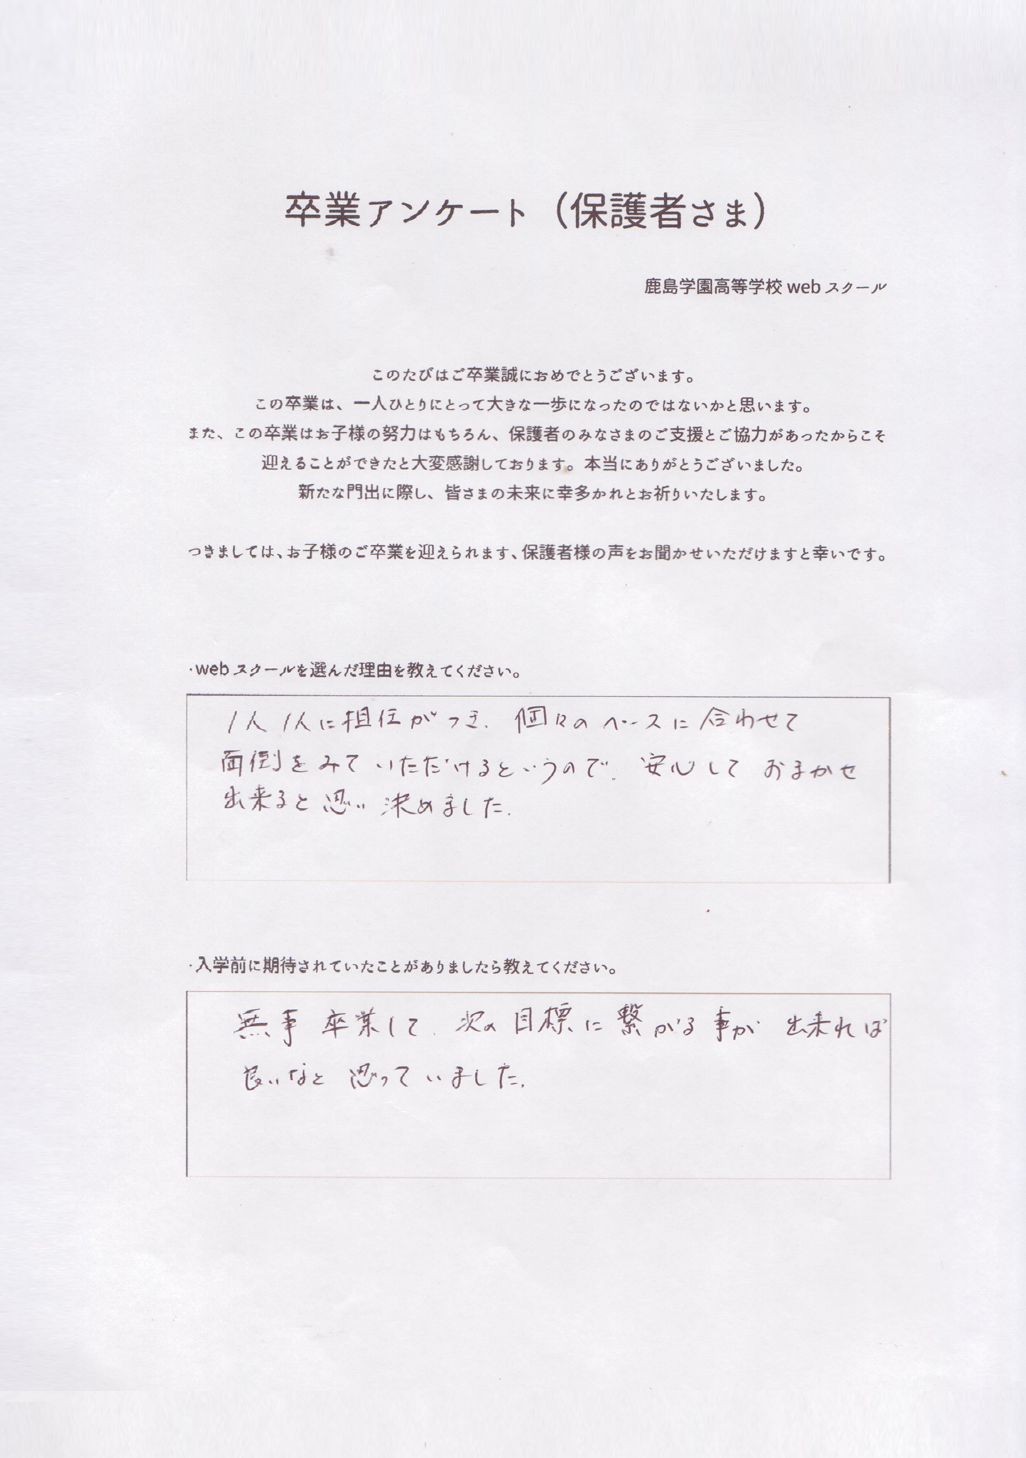 卒業アンケート（保護者さま）
鹿島学園高等学校 web スクール
このたびはご卒業誠におめでとうございます。
この卒業は、一人ひとりにとって大きな一歩になったのではないかと思います。
また、この卒業はお子様の努力はもちろん、保護者のみなさまのご支援とご協力があったからこそ
迎えることができたと大変感謝しております。本当にありがとうございました。
新たな門出に際し、皆さまの未来に幸多かれとお祈りいたします。
つきましては、お子様のご卒業を迎えられます、保護者様の声をお聞かせいただけますと幸いです。
・web スクールを選んだ理由を教えてください。
1人1人に担任がつき、個々のペースに合わせて
面倒をみていただけるというので、安心しておまかせ
出来ると思い決めました。
・入学前に期待されていたことがありましたら教えてください。
無事卒業して、次の目標に繋がる事が出来れば
良いなと思っていました。